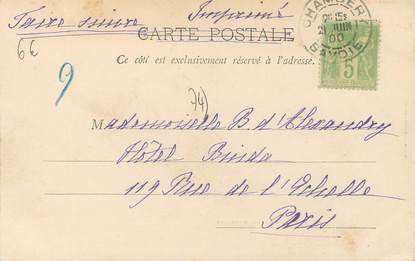 Faire suivre Imprimé
CARTE POSTALE
Ce côté est exclusivement réservé à l'adresse.
6€
9
74)
CHAMBERY
21 JUIN
00
SAVOIE
5
Mademoiselle B. d'Alexandry
Hôtel Binda
119 Rue de l'Echelle
Paris